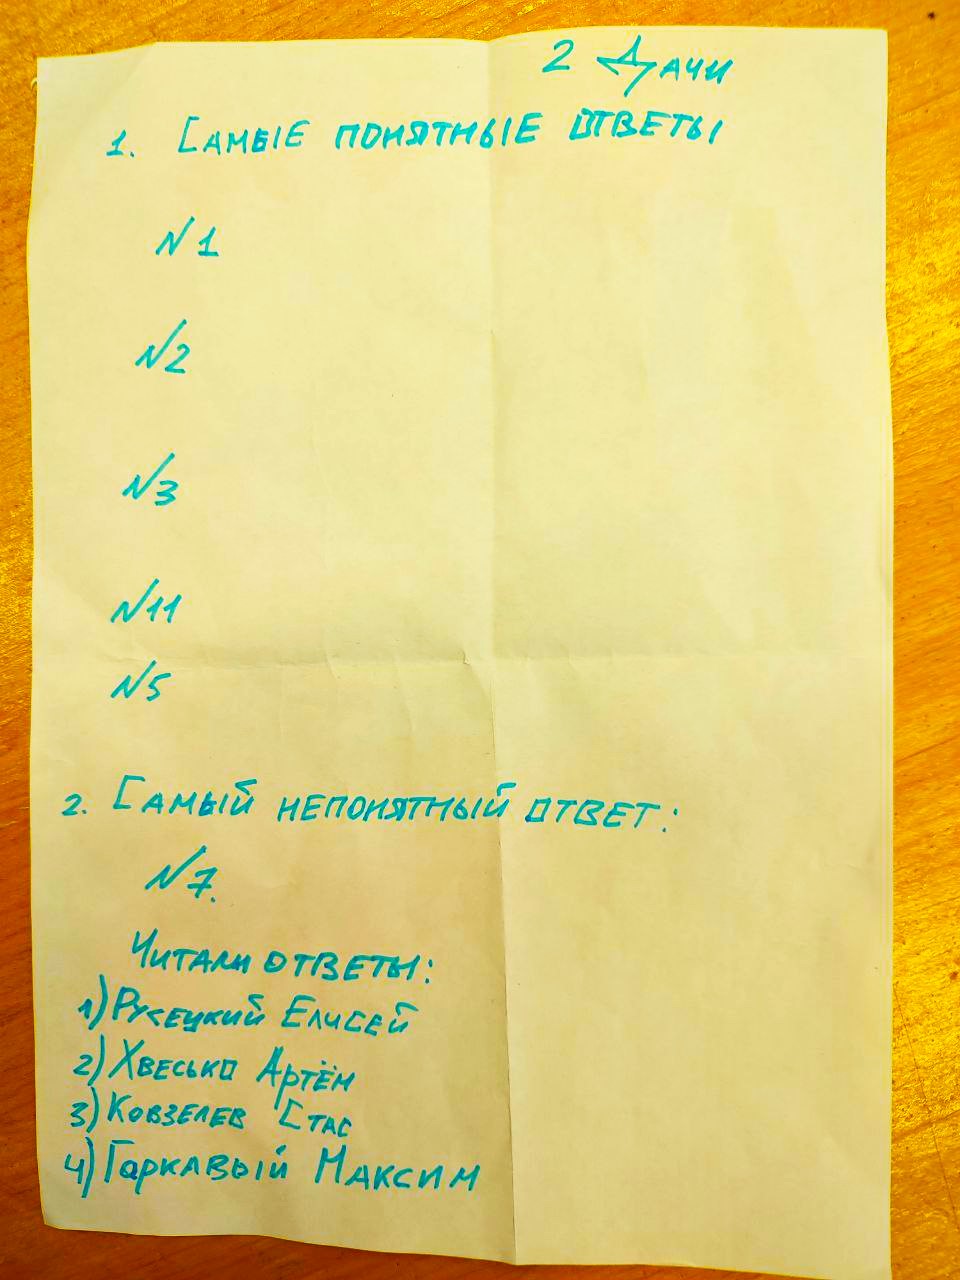 2 Дачи
1. Самые понятные ответы
№1
№2
№3
№11
№5
2. Самый непонятный ответ:
№7.
Читали ответы:
1) Русецкий Елисей
2) Хвесько Артём
3) Ковзелев Стас
4) Гаркавый Максим